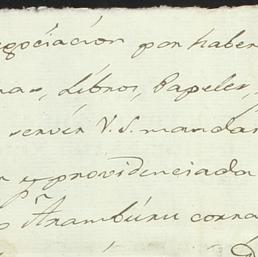 egociacion por haber
nas, Libros, Papeles,
servir V. S. mandar
providenciada
Aramburu corra